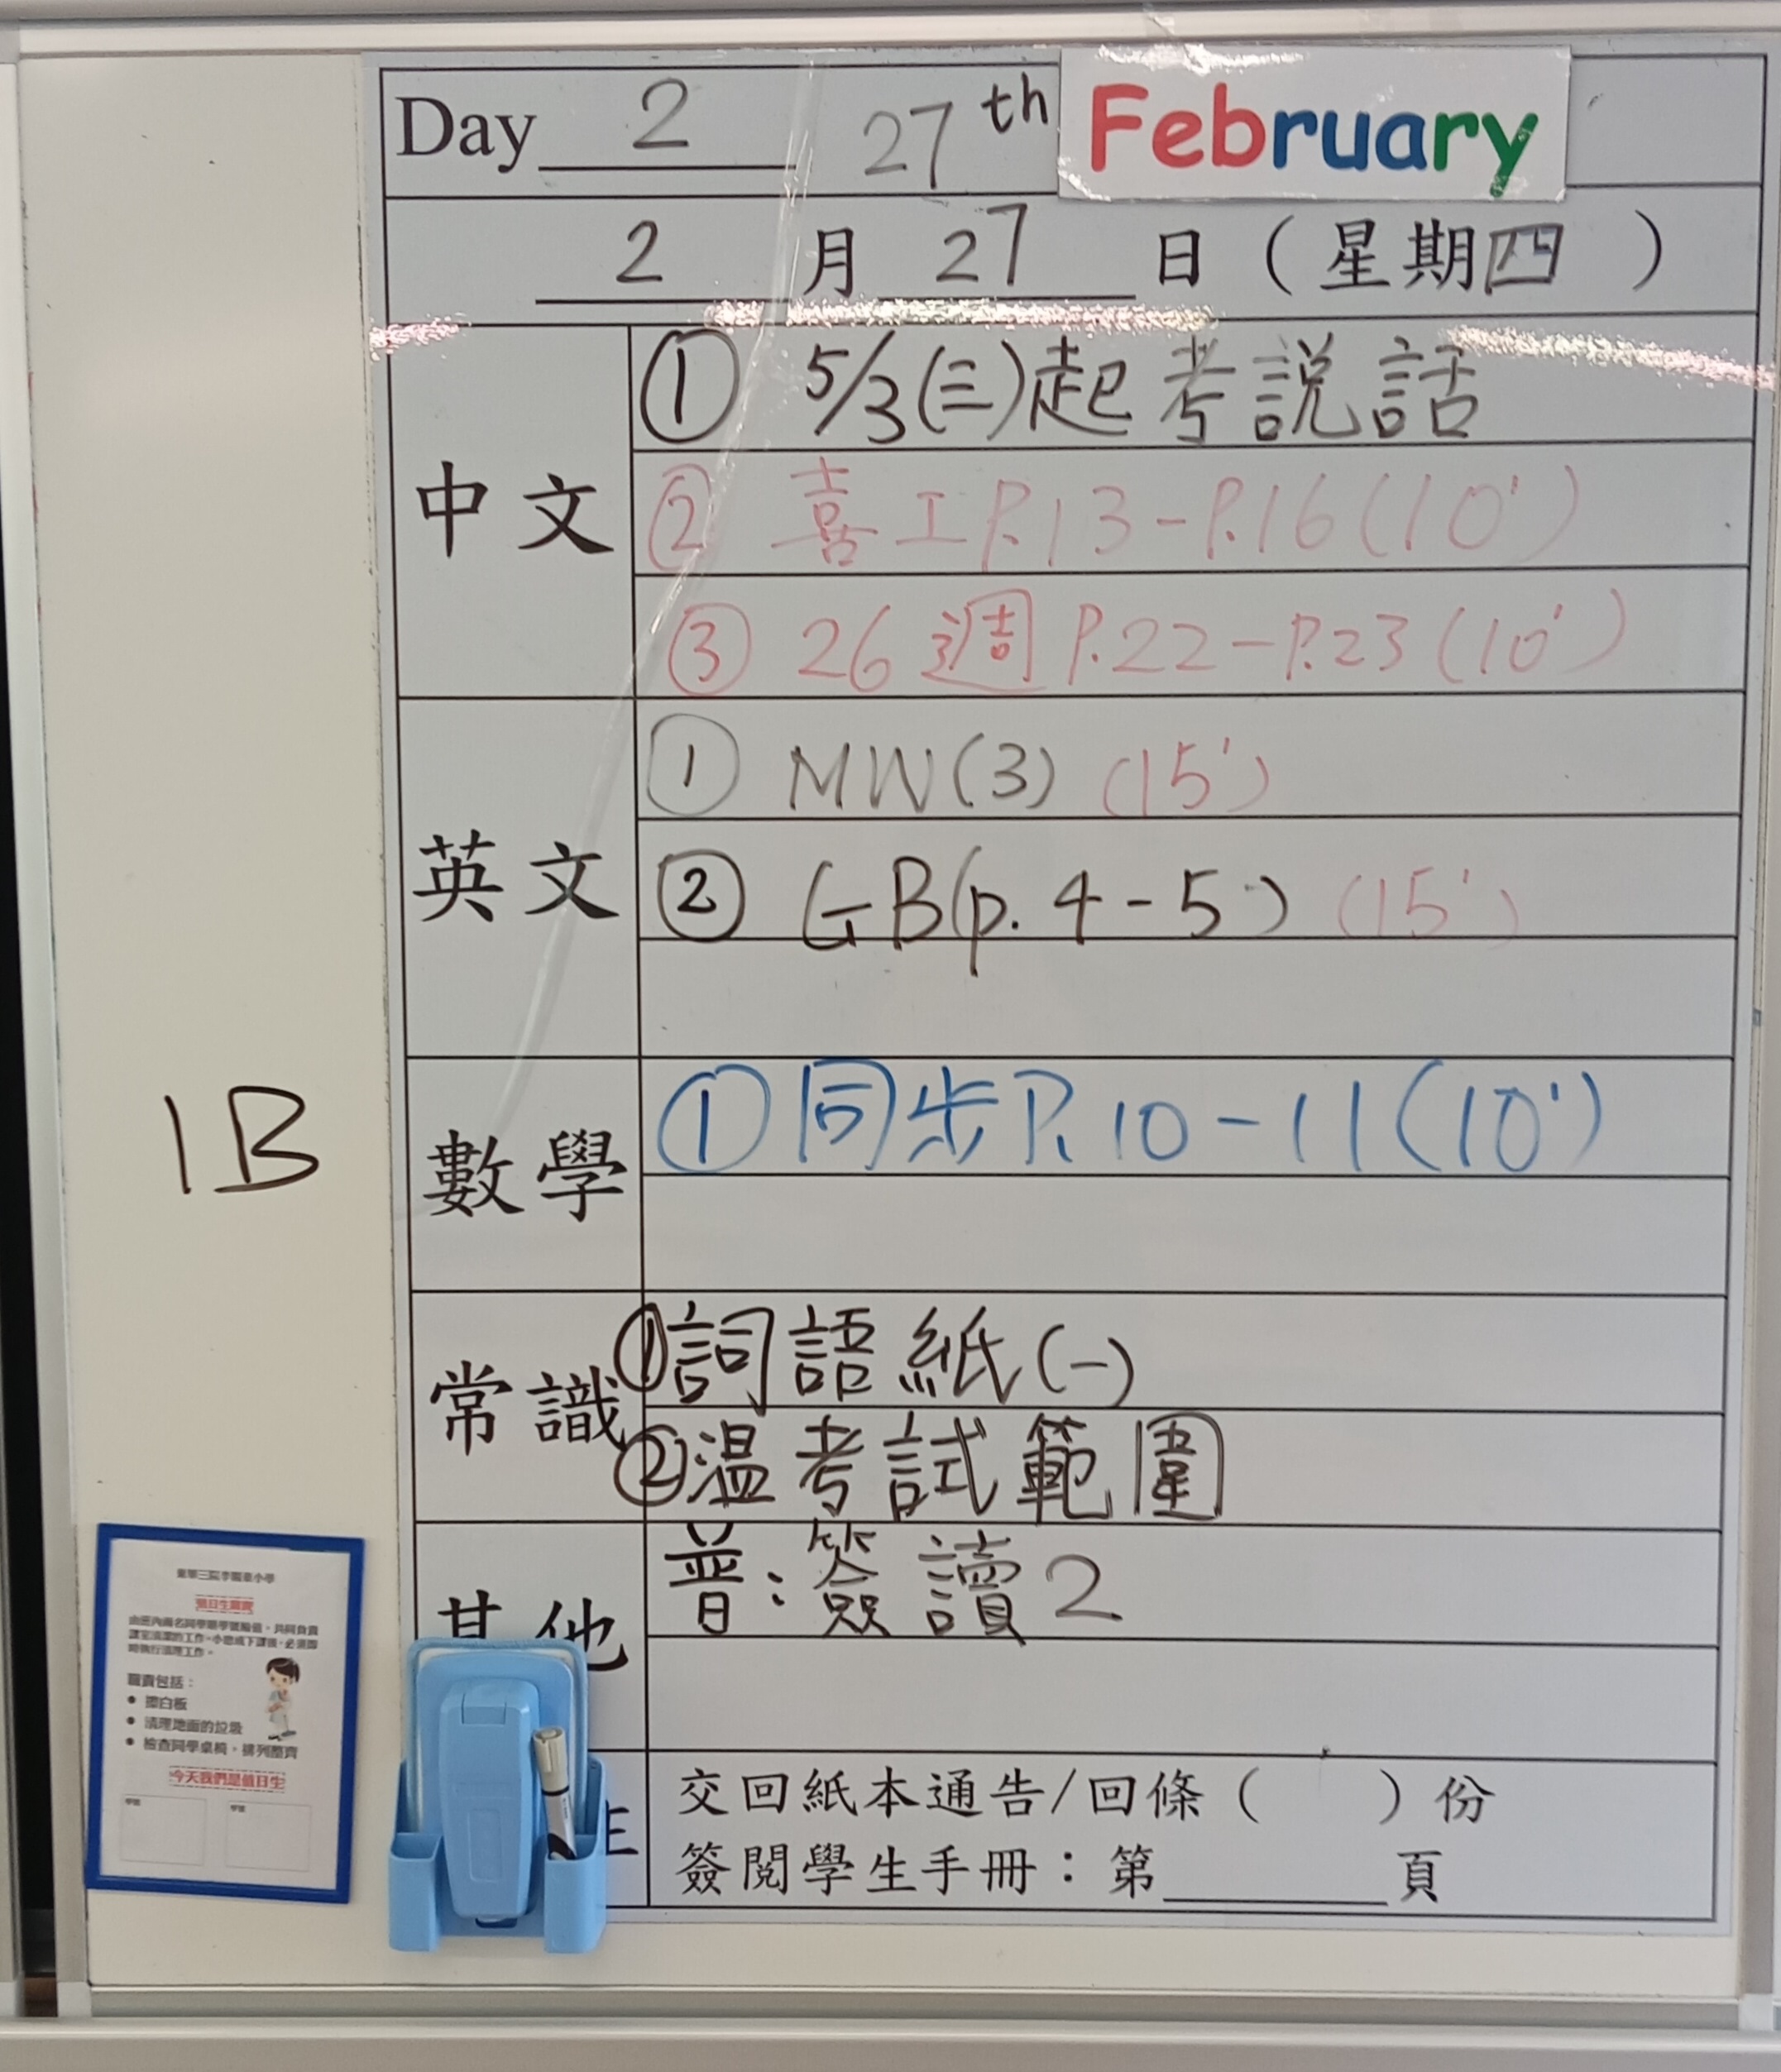 Day 2 27th February
2 月 27 日 ( 星期四 )
中文
① 5/3(三)起考説話
② 喜工P.13-P.16(10')
③ 26週P.22-P.23(10')
英文
① MW(3) (15')
② GB(p.4-5) (15')
數學
① 同步P.10-11(10')
常識
①詞語紙(一)
②溫考試範圍
其他
普:簽讀2
交回紙本通告/回條( )份
簽閱學生手冊:第____頁
1B
值日生職責
職責包括:
● 擦白板
● 清理地面的垃圾
● 檢查同學桌椅,排列整齊
今天我們是值日生
學號 學號